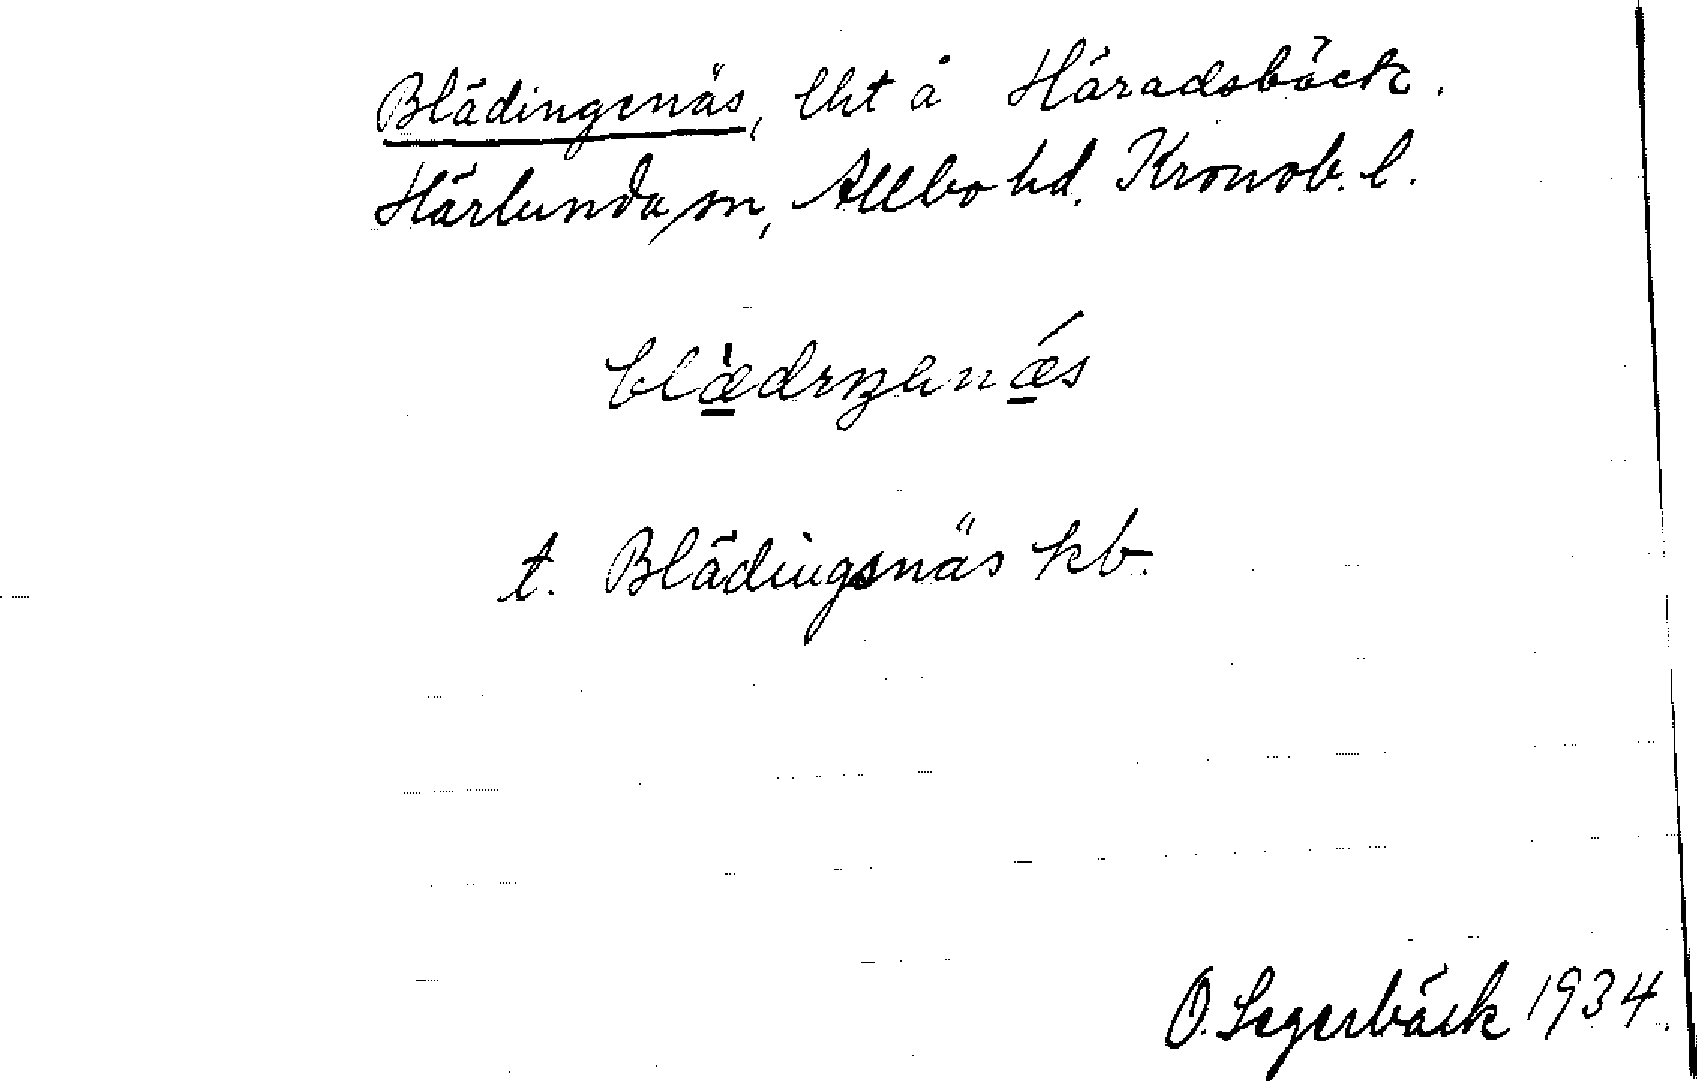 Blädingenäs, lht å Häradsbäck.
Härlunda sn, Allbo hd. Kronob. l.
blæ̀dıŋenǽs
t. Blädingsnäs kb.
O. Segerbäck 1934.